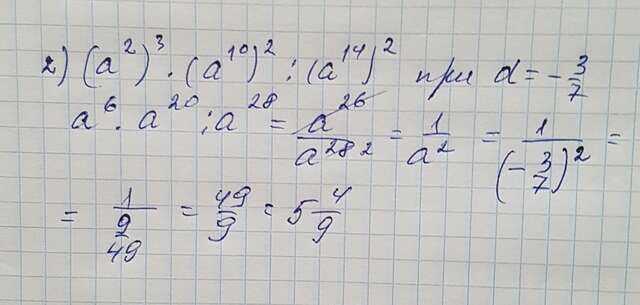 2) (a²)³ · (a¹⁰)² : (a¹⁴)² при a = -3/7
a⁶ · a²⁰ : a²⁸ = a²⁶/a²⁸ ² = 1/a² = 1/(-3/7)² =
= 1/(9/49) = 49/9 = 5 4/9